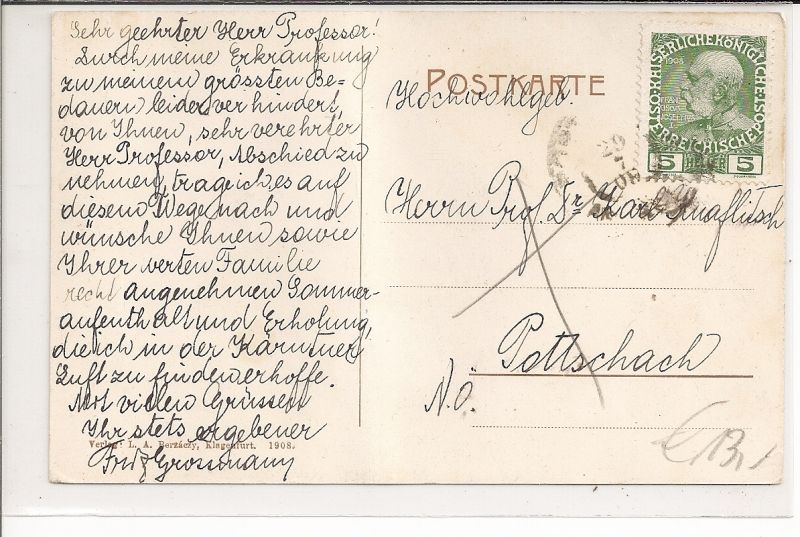 Sehr geehrter Herr Professor!
Durch meine Erkrankung
zu meinem grössten Be-
dauern leider verhindert,
von Ihnen, sehr verehrter
Herr Professor, Abschied zu
nehmen, trage ich es auf
diesem Wege nach und
wünsche Ihnen sowie
Ihrer werten Familie
recht angenehmen Sommer-
aufenthalt und Erholung,
die ich in der Kärntner
Luft zu finden erhoffe.
Mit vielen Grüssen
Ihr stets ergebener
Fritz Grossmann
Verlag: L. A. Berzáczy, Klagenfurt. 1908.
POSTKARTE
Hochwohlgeb.
Herrn Prof. Dr Karl
Pottschach
N.Ö.
KAISERLICHE KÖNIGLICHE
ÖSTERREICHISCHE POST
1908
5 HELLER 5